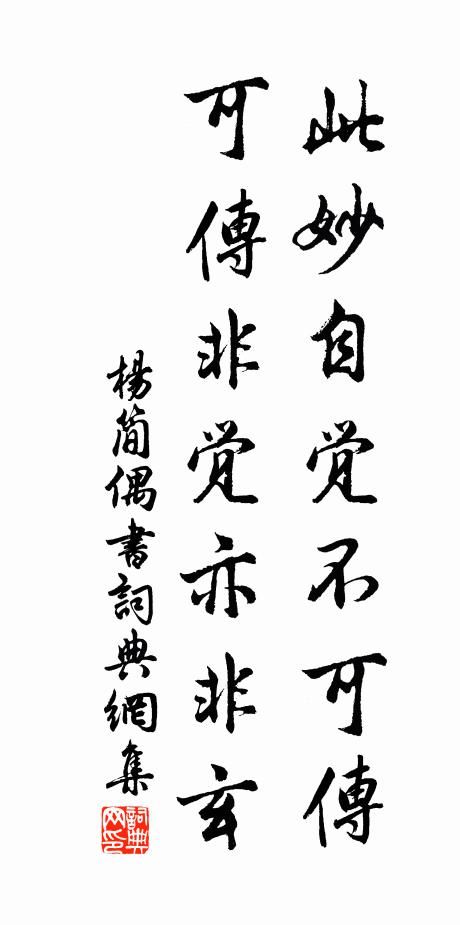 此妙自觉不可傳
可傳非觉亦非玄
楊简偶書詞典網集
詞典网印